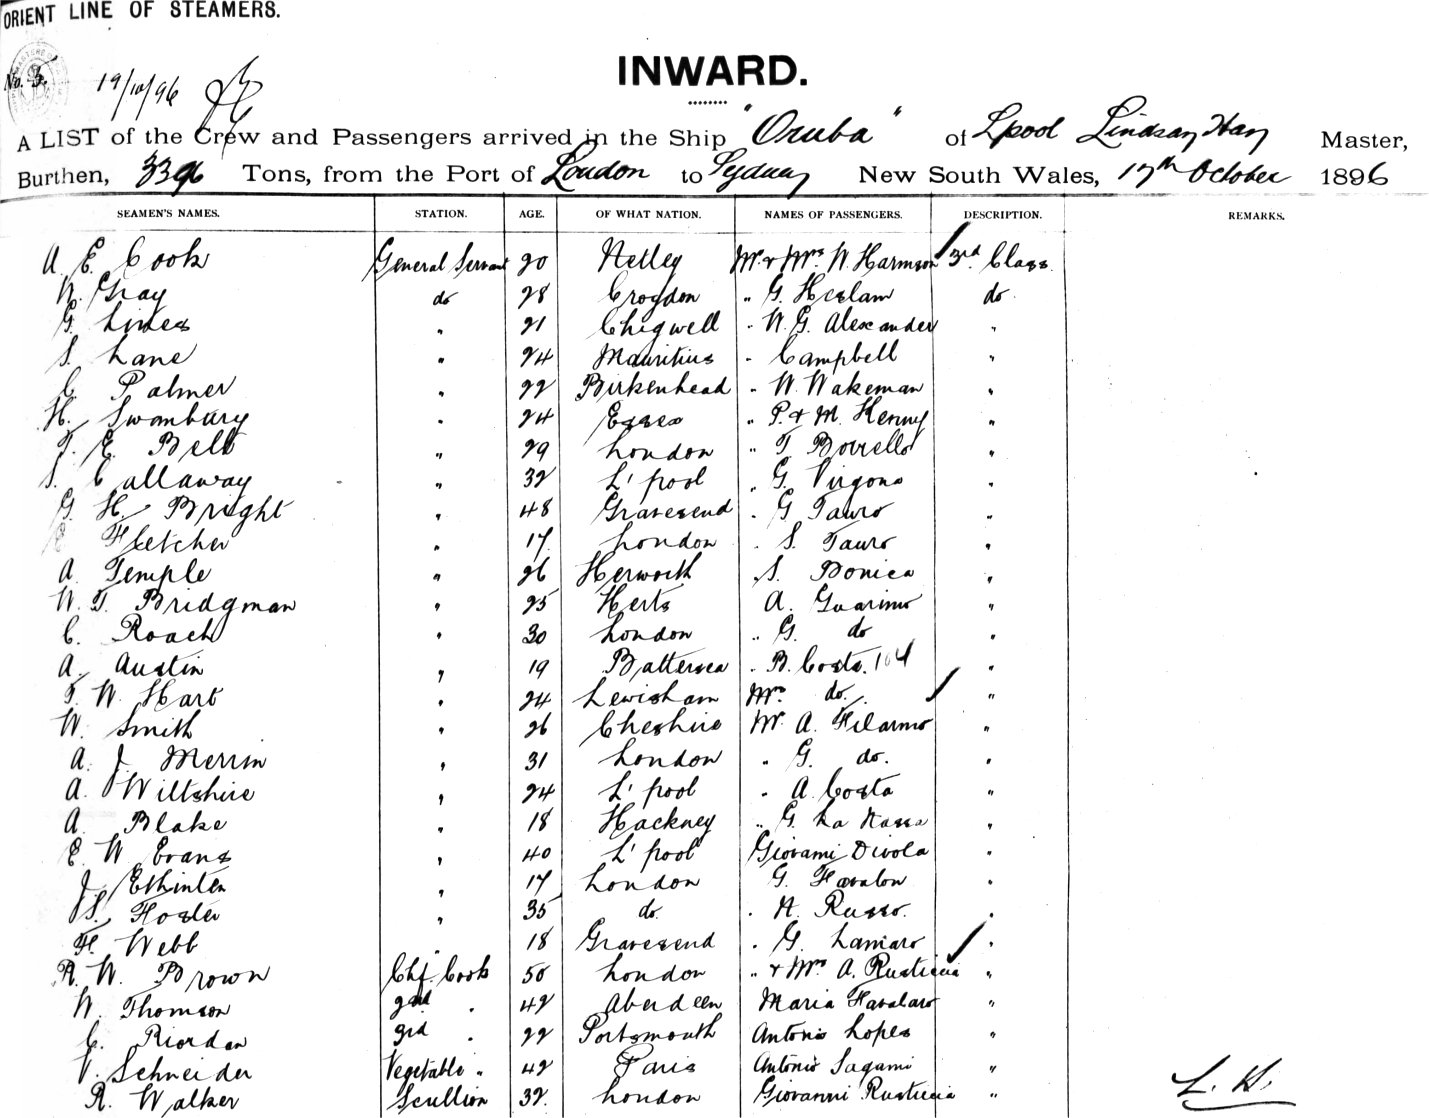 ORIENT LINE OF STEAMERS.
No. 5.
19/10/96
INWARD.
A LIST of the Crew and Passengers arrived in the Ship "Oruba" of Lpool Lindsay Hay Master,
Burthen, 3396 Tons, from the Port of London to Sydney New South Wales, 17th October 1896
SEAMEN'S NAMES. STATION. AGE. OF WHAT NATION. NAMES OF PASSENGERS. DESCRIPTION. REMARKS.
A E. Cook General Servant 20 Netley Mr & Mrs W. Harmson 3rd Class.
W. Gray do 28 Croydon " G. Heslam do
G. Lines " 21 Chigwell " W. G. Alexander "
S. Lane " 24 Mauritius " Campbell "
C. Palmer " 22 Birkenhead " W. Wakeman "
H. Swanbury " 24 Essex " P. & M. Kenny "
T. E. Belt " 29 London " T Borrello "
S. Callaway " 32 L'pool " G. Virgona "
G. H. Bright " 48 Gravesend " G Tauro "
E Fletcher " 17 London " S. Tauro "
A Temple " 26 Herworth " S. Bonica "
W. T. Bridgman " 25 Herts A. Guarino "
C. Roach " 30 London " G. do "
A. Austin " 19 Battersea " B. Costa. 104 "
T. W. Hart " 24 Lewisham Mrs do. "
W. Smith " 26 Cheshire Mr A. Filarmo "
A. J Merrin " 31 London " G. do. "
A. Wiltshire " 24 L'pool " A. Costa "
A. Blake " 18 Hackney " G. La Nassa "
E W Evans " 40 L'pool Giovanni Divola "
J Ethinten " 17 London G. Favalon "
S. Foster " 35 do. " N. Russo. "
F. Webb " 18 Gravesend " G. Lamaro "
R. W. Brown Chf. Cook 50 London " & Mrs A. Rusticia "
W. Thomson 2nd " 42 Aberdeen Maria Favalaro "
C. Riordan 3rd " 22 Portsmouth Antonio Lopes "
V. Schneider Vegetable " 42 Paris Antonio Sagami "
R. Walker Scullion 32. London Giovanni Rusticia "
L. H.